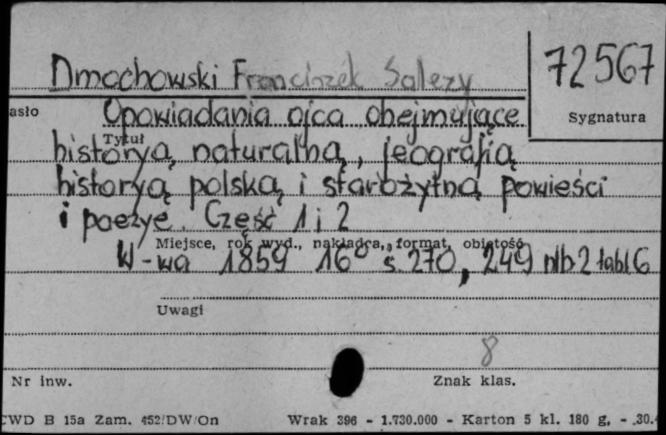 72567
Dmochowski Franciszek Salezy
asło
Sygnatura
Opowiadania ojca obejmujące
Tytuł
historyą naturalną, jeografią
historyą polską i starożytną powieści
i poezye. Część 1 i 2
Miejsce, rok wyd., nakładca, format, objętość
W-wa 1859 16° s. 270, 249 nlb 2 tabl 6
Uwagi
8
Nr inw.
Znak klas.
CWD B 15a Zam. 452/DW/On Wrak 396 - 1.730.000 - Karton 5 kl. 180 g. - .30.